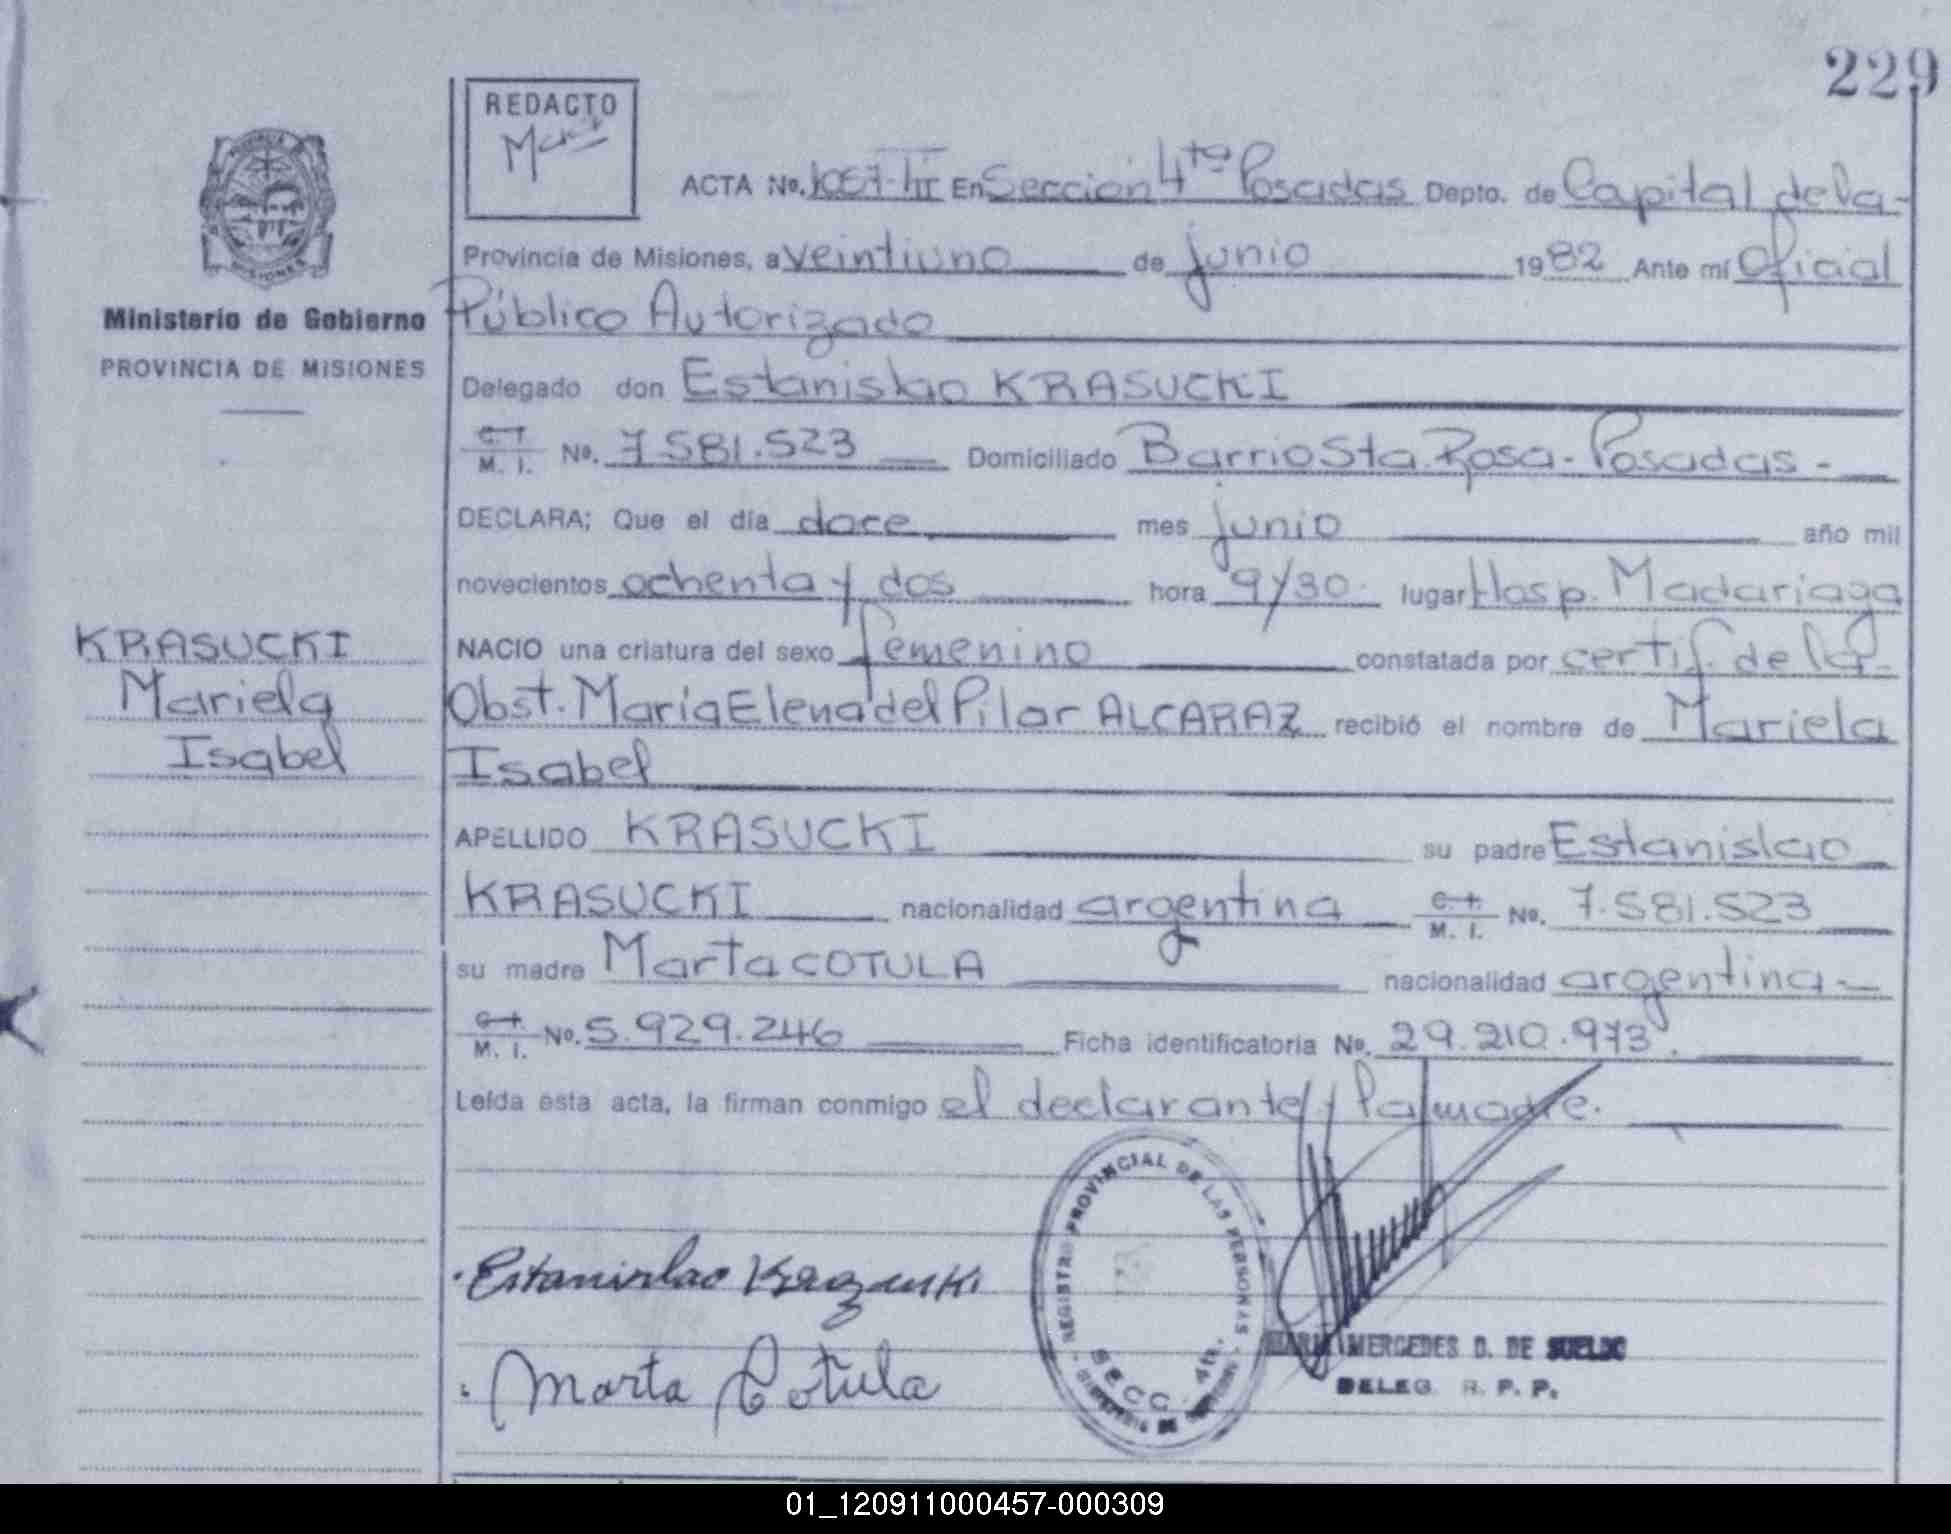 229
REDACTO
ACTA No. 1057-III En Sección 4ta Posadas Depto. de Capital de la-
Provincia de Misiones, a veintiuno de junio 1982 Ante mí Oficial
Público Autorizado
Ministerio de Gobierno
PROVINCIA DE MISIONES
Delegado don Estanislao KRASUCKI
M. I. No. 7.581.523 Domiciliado Barrio Sta. Rosa - Posadas -
DECLARA; Que el día doce mes junio año mil
novecientos ochenta y dos hora 9/30 lugar Hosp. Madariaga
NACIO una criatura del sexo femenino constatada por certif. de la
Obst. María Elena del Pilar ALCARAZ recibió el nombre de Mariela
Isabel
KRASUCKI
Mariela
Isabel
APELLIDO KRASUCKI su padre Estanislao
KRASUCKI nacionalidad argentina M. I. No. 7.581.523
su madre Marta COTULA nacionalidad argentina -
M. I. No. 5.929.246 Ficha identificatoria No. 29.210.973.
Leída esta acta, la firman conmigo el declarante y la madre.
Estanislao Krasucki
Marta Cotula
REGISTRO PROVINCIAL DE LAS PERSONAS
SECC. 4ta.
MARIA MERCEDES D. DE SUELDO
DELEG. R. P. P.
01_120911000457-000309